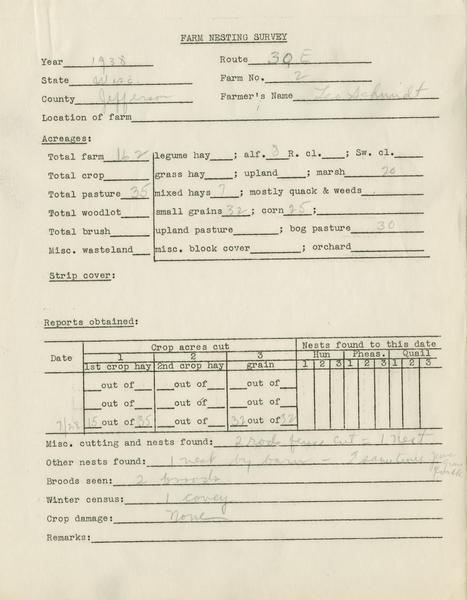 FARM NESTING SURVEY
Year 1938 Route 30 E
State Wisc. Farm No. 2
County Jefferson Farmer's Name Leo Schmidt
Location of farm
Acreages:
Total farm 162 legume hay ; alf. 8 R. cl. ; Sw. cl.
Total crop grass hay ; upland ; marsh 20
Total pasture 35 mixed hays 7 ; mostly quack & weeds
Total woodlot small grains 32 ; corn 25 ;
Total brush upland pasture ; bog pasture 30
Misc. wasteland misc. block cover ; orchard
Strip cover:
Reports obtained:
Crop acres cut Nests found to this date
Date 1 2 3 Hun Pheas. Quail
1st crop hay 2nd crop hay grain 1 2 3 1 2 3 1 2 3
out of out of out of
out of out of out of
7/28 15 out of 35 out of 32 out of 32
Misc. cutting and nests found: 2 rods fence cut = 1 nest
Other nests found: 1 nest by barn -
Broods seen: 2 broods
Winter census: 1 covey
Crop damage: None
Remarks: